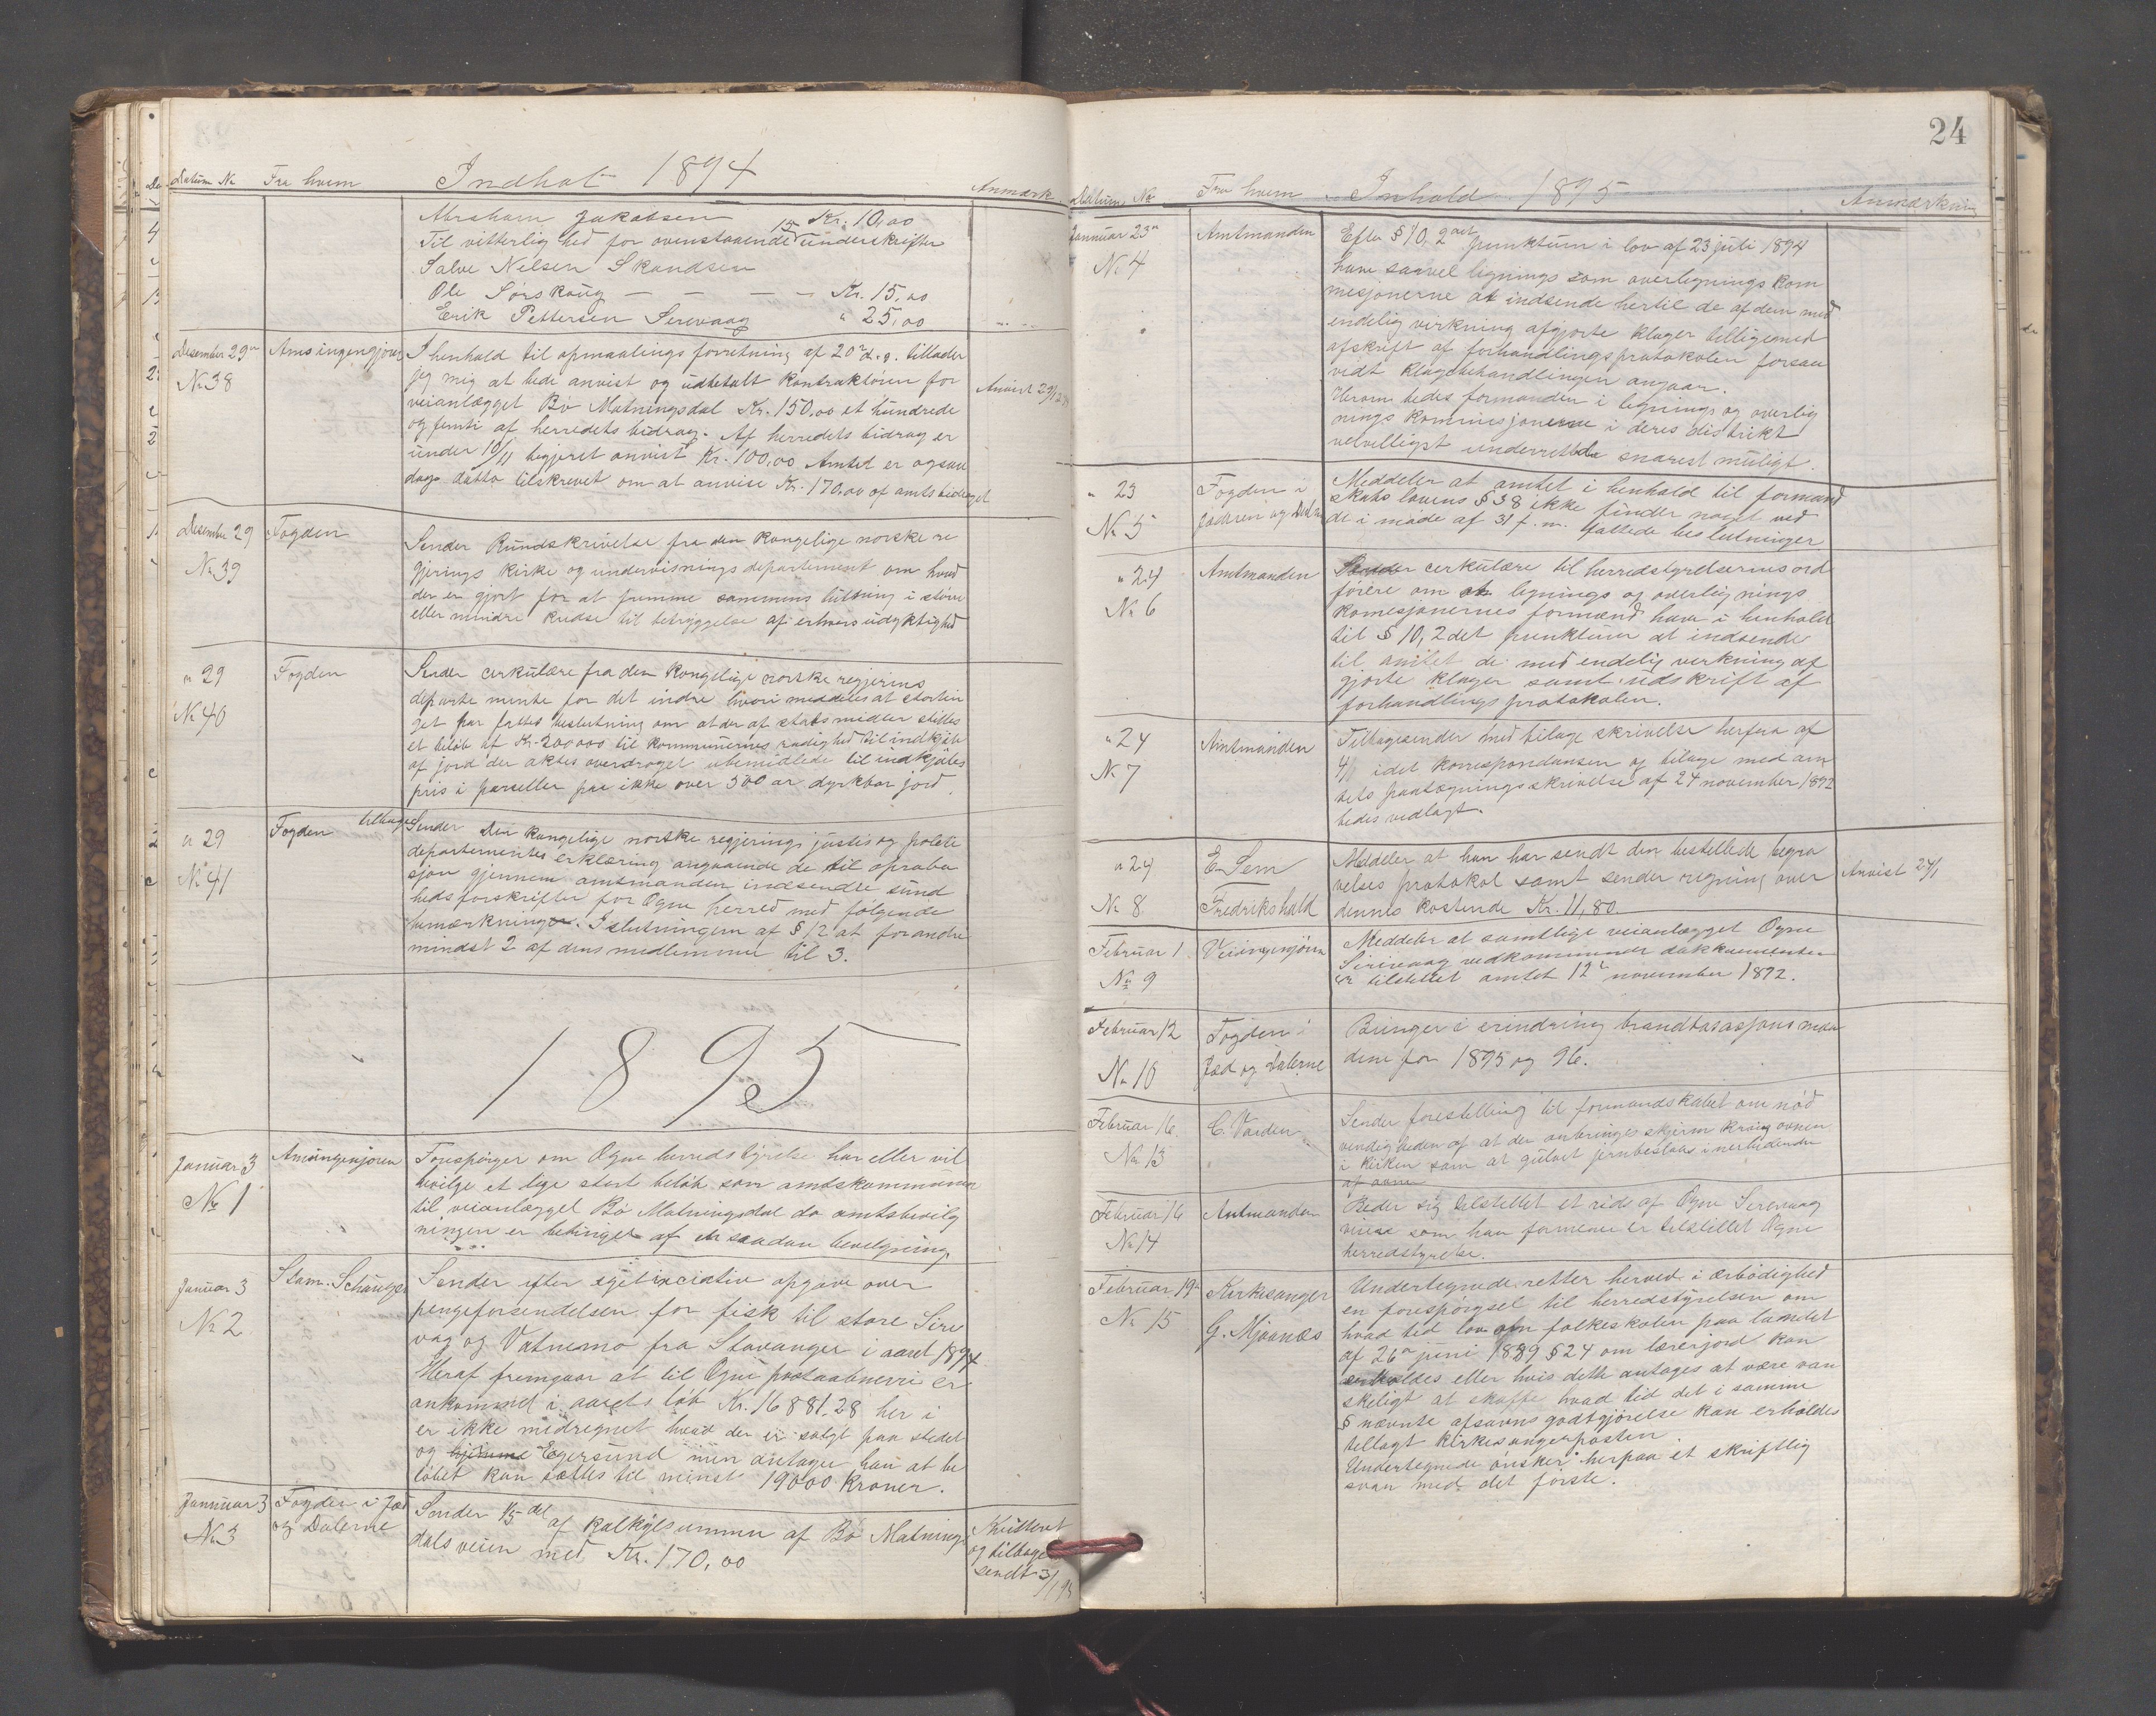 Datum No Fra hvem Indhol 1894 Anmærk
Abraham Jakobsen Kr. 10,00
Til vitterlighed for ovenstaaende 15 underskrifter
Salve Nilsen Skandsen
Ole Sørskoug — — — — Kr. 15,00
Erik Pettersen Sirevaag " 25,00
Desember 29de Amsingengjøren
No 38
I henhold til opmaalingsforretning af 20de d.a. tillader
jeg mig at bede anvist og udbetalt kontraktøren for
veianlægget Bø Matningsdal Kr. 150,00 et hundrede
og femti af herredets bidrag. Af herredets bidrag er
under 10/11 begjæret anvist Kr. 100,00 Amtet er ogsaa
dags datto tilskrevet om at anvise Kr. 170,00 af amtsbidraget
Anvist 29/12
Desember 29 Fogden
No 39
Sender Rundskrivelse fra den kongelige norske re
gjerings kirke og undervisnings departement om hvad
der er gjort for at fremme sammens tutning i større
eller mindre kredse til betryggelse af erhvervsudyktighed
" 29 Fogden
No 40
Sender cerkulære fra den kongelige norske regjerins
departe mente for det indre hvori meddeles at stortin
get har fattet beslutning om at der af statsmidler stilles
et beløb af Kr. 200000 til kommunernes raadighed til indkjøb
af jord der aktes overdraget ubemidlede til indkjøbs
pris i parseller paa ikke over 500 ar dyrkbar jord.
" 29 Fogden tilbage
No 41
Sender Den kongelige norske regjerings justis og politi
departementes erklæring angaaende de til aproba
sjon gjennem amtmanden indsendte sund
heds forskrifter for Ogne herred med følgende
bemærkninger. I slutningen af § 12 at forandre
mindst 2 af dens medlemmer til 3.
1895
Januar 3 Amsingenjøren
No 1
Forespørger om Ogne herredstyrelse har eller vil
bevilge et lige stort beløb som amdskommunen
til veianlægget Bø Matningsdal da amtsbevilg
ningen er betinget af en saadan bevelgning.
Januar 3 Stam. Schanger
No 2
Sender efter eget iniciativ opgave over
pengeforsendelsen for fisk til store Sire
vag og Vatnemo fra Stavanger i aaret 1894
Heraf fremgaar at til Ogne postaabneri er
ankommed i aarets løb Kr. 16881,28 her i
er ikke midregnet hvad der er solgt paa stedet
og hjemme Egersund men antager han at be
løbet kan sættes til minst 19000 kroner.
Januar 3 Fogden i Jæd og Dalerne
No 3
Sender 1/5 del af kalkylesummen af Bø Matnings
dalsveien med Kr. 170,00
Kvitteret
og tilbage
sendt 3/1 95
24
Datum No Fra hvem Inhold 1895 Anmærkning
Januar 23de Amtmanden
No 4
Efter § 10, 2det punktum i lov af 23 juli 1894
have saavel lignings som overlignings kom
mesjonerne at indsende hertil de af dem med
endelig virkning afgjorte klager tilligemed
afskrift af forhandlingsprotokolen forsaa
vidt klagebehandlingen angaar.
Herom bedes formanden i lignings og overlig
nings kommisjonerne i deres distrikt
velvilligst underrettede snarest muligt.
" 23 Fogden i
No 5 Jæderen og Dalerne
Meddeler at amtet i henhold til formand
skabs lovens § 38 ikke finder noget ved
de i møde af 31 f.m. fattede beslutninger
" 24 Amtmanden
No 6
Sender cerkulære til herredstyrelsernes ord
førere om at lignings og overlignings
komesjonernes formænd have i henhold
til § 10, 2det punktum at indsende
til amtet de med endelig verkning af
gjorte klager samt udskrift af
forhandlings protokolen.
" 24 Amtmanden
No 7
Tilbagesender med bilage skrivelse herfra af
4/1 idet korrespondansen og bilage med am
tets paategnings skrivelse af 24 november 1892
bedes vedlagt.
" 24 E. Sem
No 8 Fredrikshald
Meddeler at han har sendt den bestellede begra
velses protokol samt sender regning over
dennes kostende Kr. 11,80.
Anvist 24/1
Februar 1 Veiingenjøren
No 9
Meddeler at samtlige veianlægget Ogne
Sirevaag vedkommende dokkumenter
er tilstillet amtet 12te november 1892.
Februar 12 Fogden i
No 10 Jæd og Dalerne
Bringer i erindring brandtaxasjons mæn
dene for 1895 og 96.
Februar 16. C. Varden
No 13
Sender forestilling til formandskabet om nød
vendigheden af at der anbringes skjerm kring ovnen
i kirken som at gulvet jernbeslaas i nerheden
af ovnen
Februar 16 Amtmanden
No 14
Beder sig tilstillet et rids af Ogne Sirevaag
veien som han formener er tilstillet Ogne
herredstyrelse.
Februar 19de Kirkesanger
No 15 G. Mjaanæs
Undertegnede retter herved i ærbødighed
en forespørgsel til herredstyrelsen om
hvad tid lov om folkeskolen paa landet
af 26de juni 1889 § 24 om lærerjord kan
erholdes eller hvis dette antages at være van
skeligt at skaffe hvad tid det i samme
§ nævnte afsavns godtgjørelse kan erholdes
tillagt kirkesangerposten.
Undertegnede ønsker herpaa et skriftlig
svar med det første.